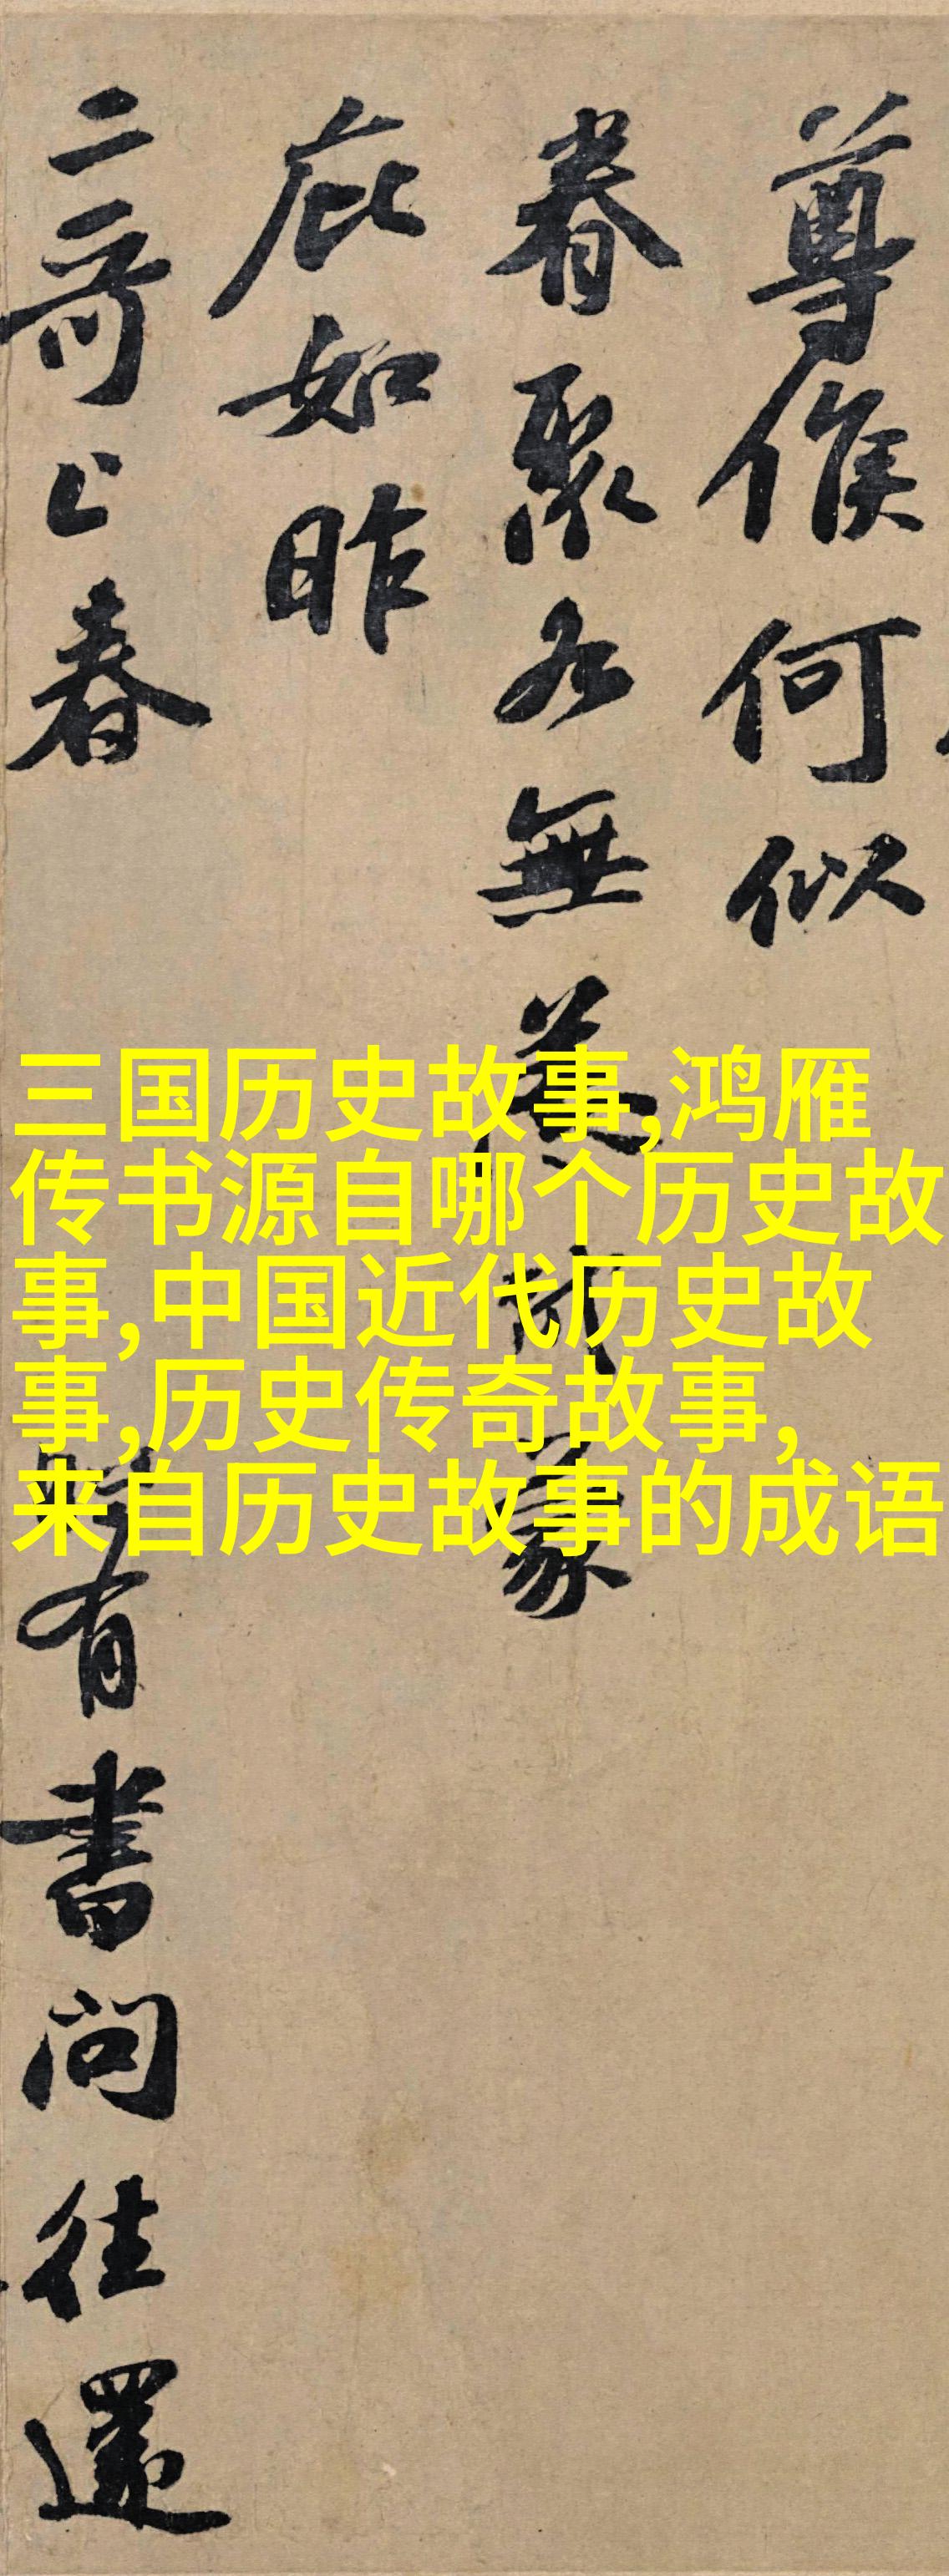 尊候何似
眷聚各無恙同蒙
庇如昨
二哥上春
時有書問往還
三国历史故事,鸿雁
传书源自哪个历史故
事,中国近代历史故
事,历史传奇故事,
来自历史故事的成语